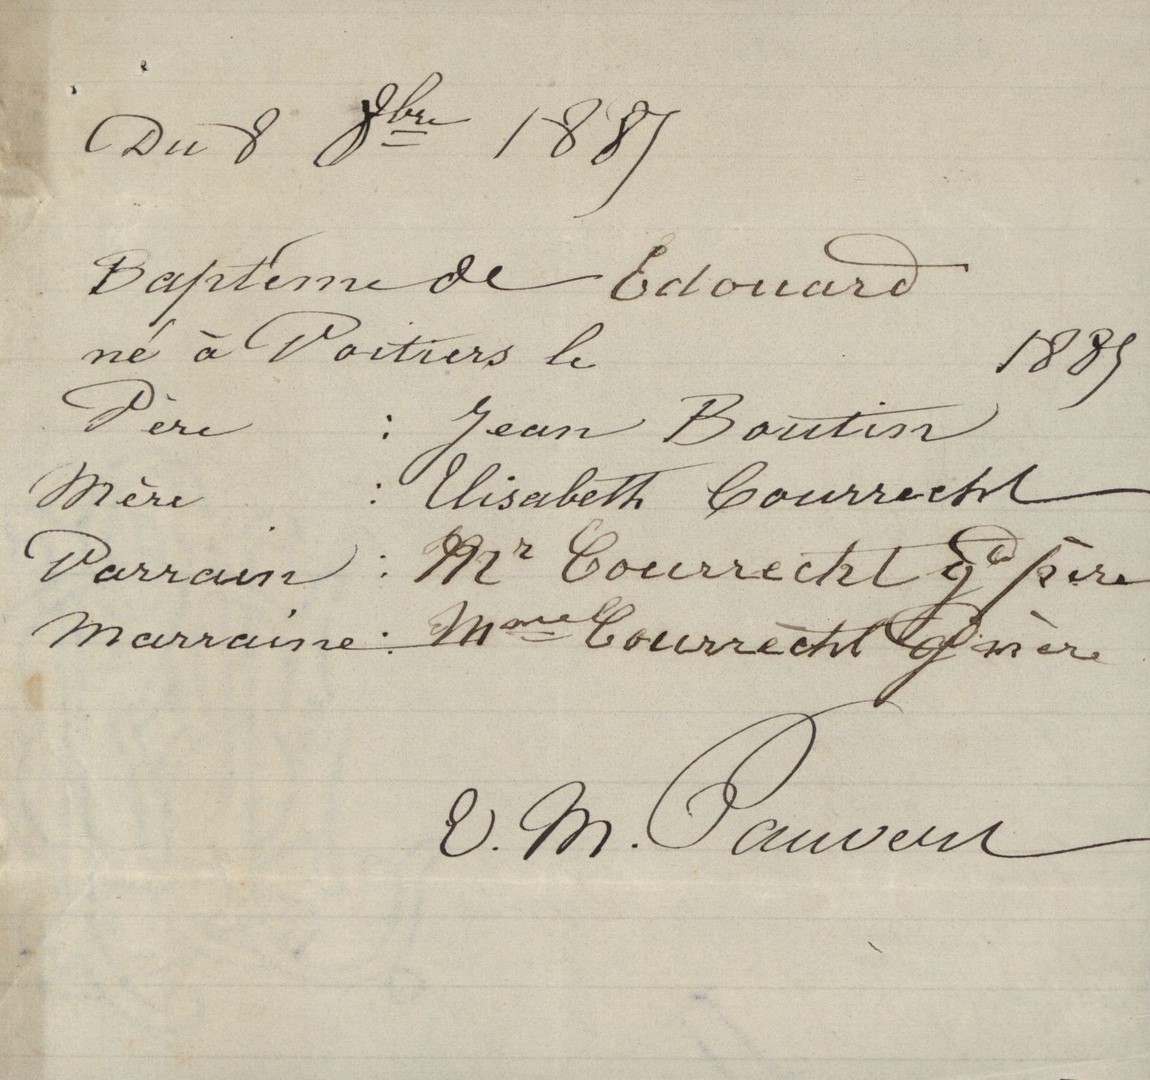 Du 8 8bre 1885
Baptême de Edouard
né à Poitiers le 1885
Père : Jean Boutin
Mère : Elisabeth Courrecht
Parrain : Mr Courrecht gd père
Marraine : Mme Courrecht gd mère
E. M. Pauvert